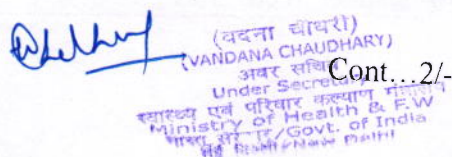 (वंदना चौधरी)
(VANDANA CHAUDHARY)
अवर सचिव
Under Secretary
Cont…2/-
स्वास्थ्य एवं परिवार कल्याण मंत्रालय
Ministry of Health & F.W
भारत सरकार/Govt. of India
नई दिल्ली/New Delhi